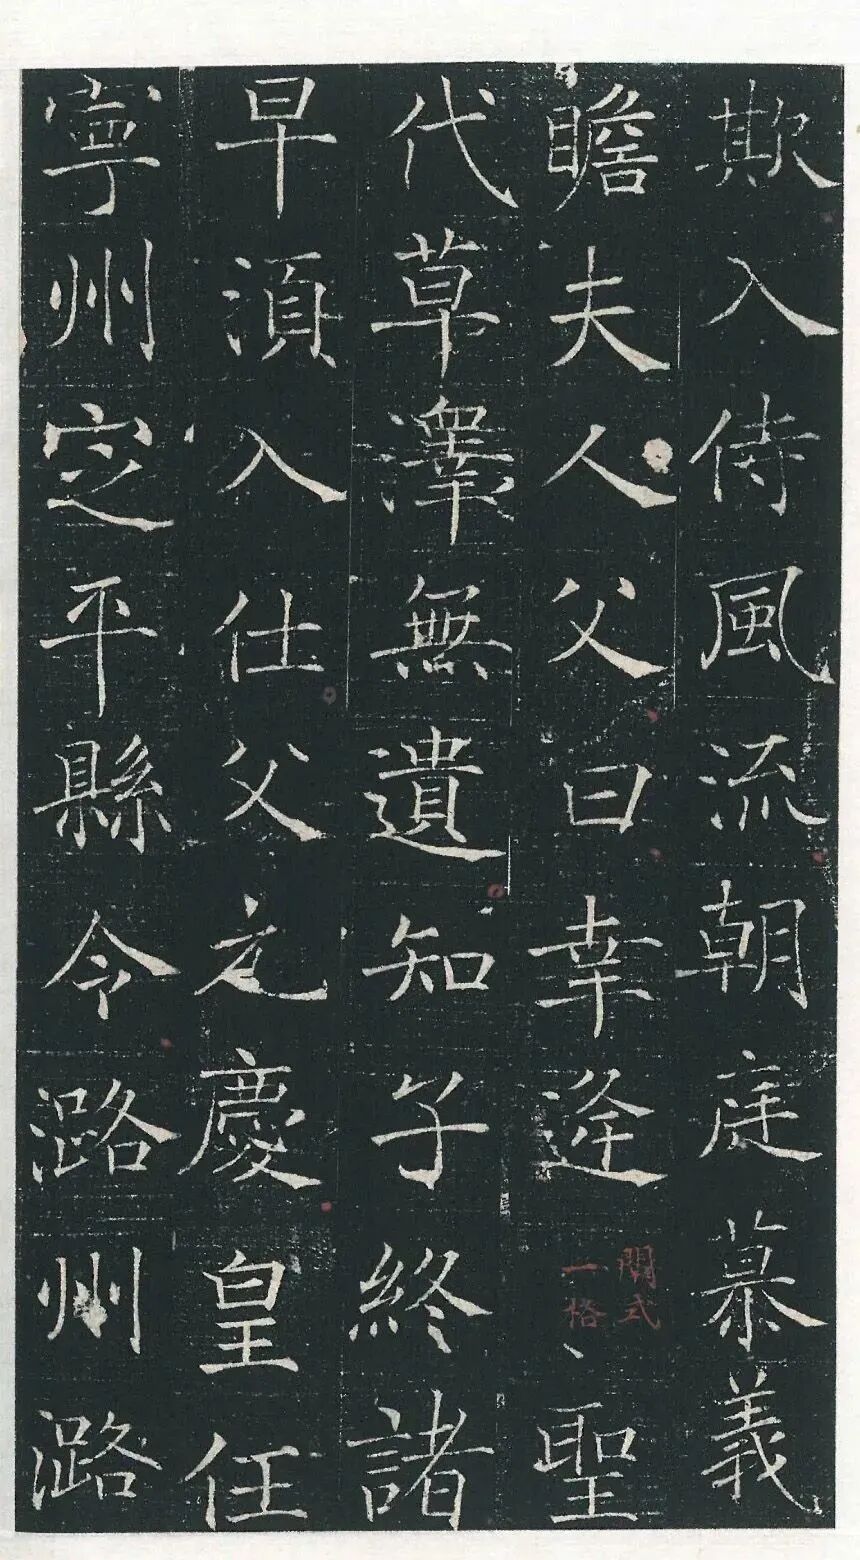 欺入侍風流朝庭慕義
瞻夫人父曰幸逢聖
式
一格
代草澤無遺知子終諸
早湏入仕父之慶皇任
寧州定平縣令潞州潞